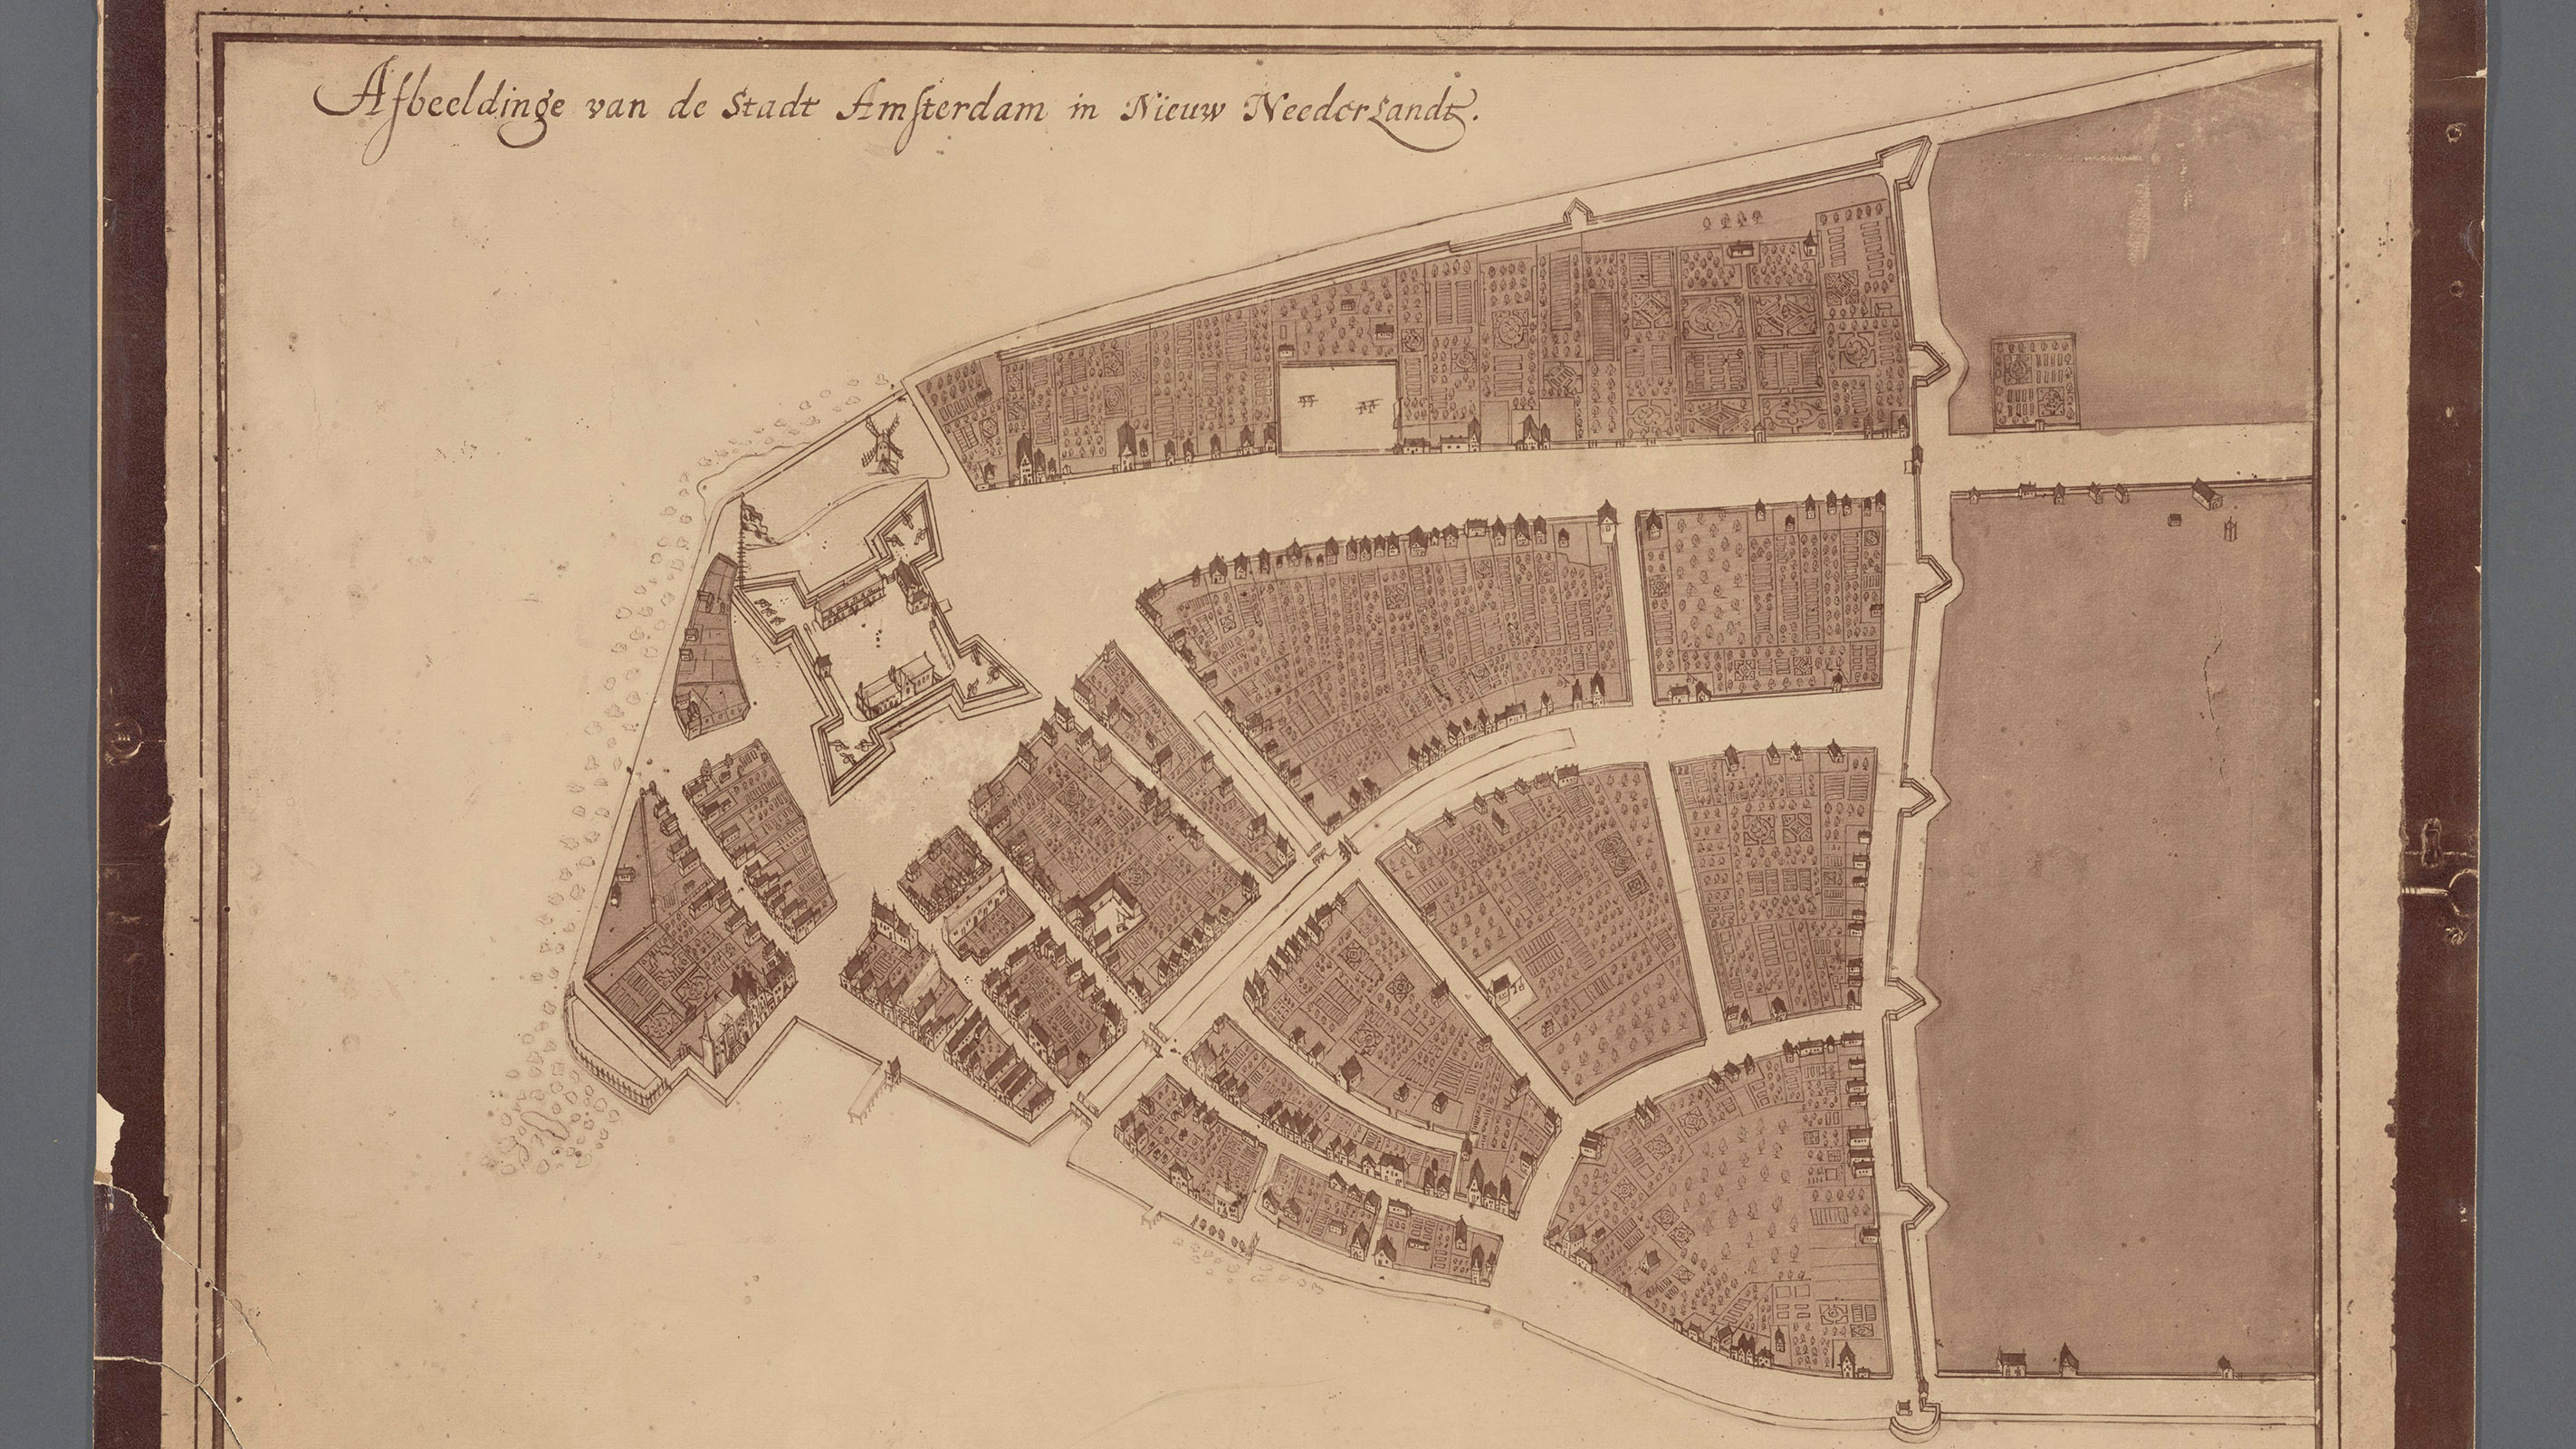 Afbeeldinge van de Stadt Amſterdam in Nieuw Neederlandt.